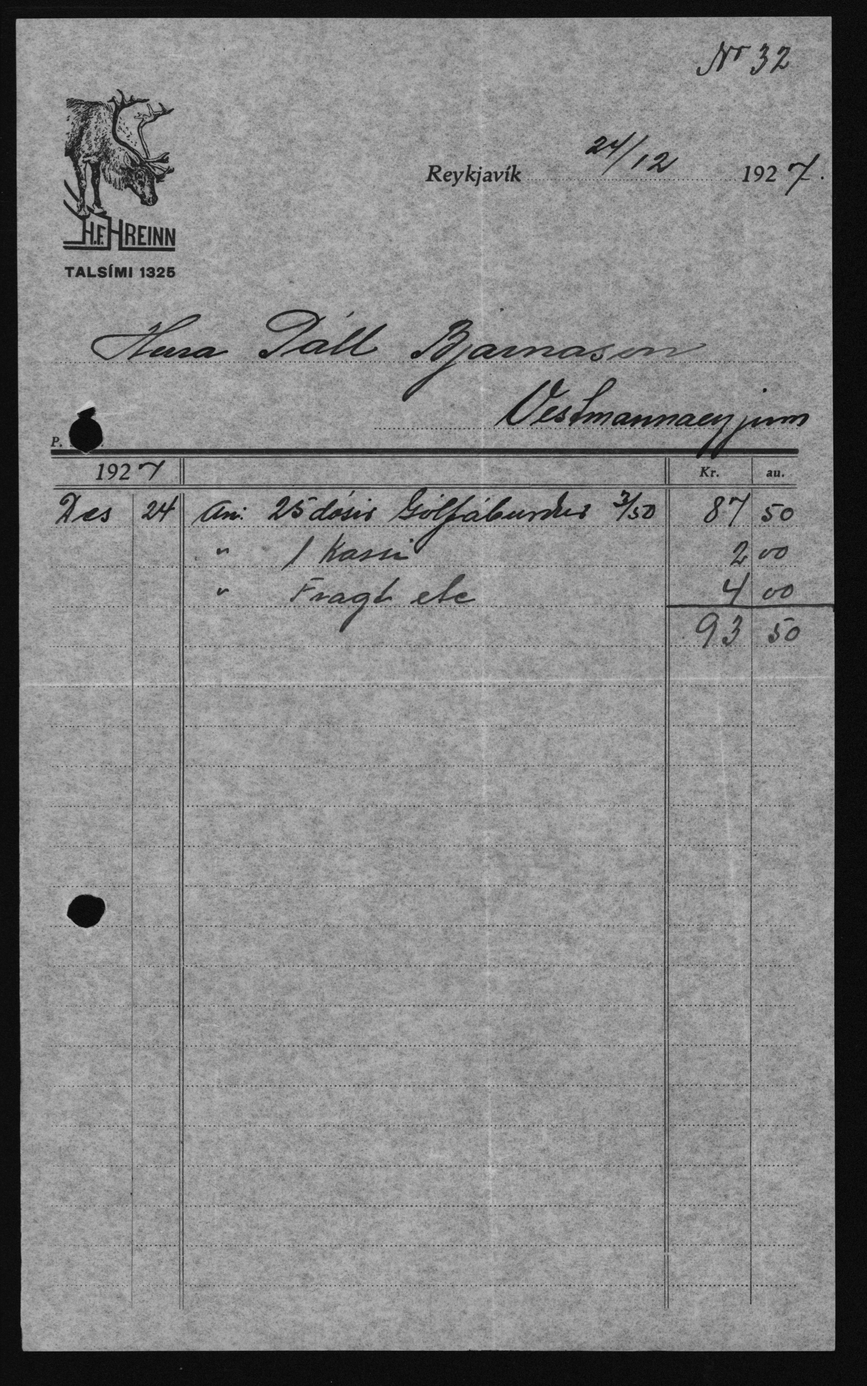 Nr 32
H.F. HREINN
TALSÍMI 1325
Reykjavík 24/12 1927.
Herra Páll Bjarnason
Vestmannaeyjum
P.
1927 Kr. au.
Des 24 An: 25 dósir Gólfáburður 3/50 87 50
" 1 Kassi 2 00
" Fragt etc 4 00
93 50